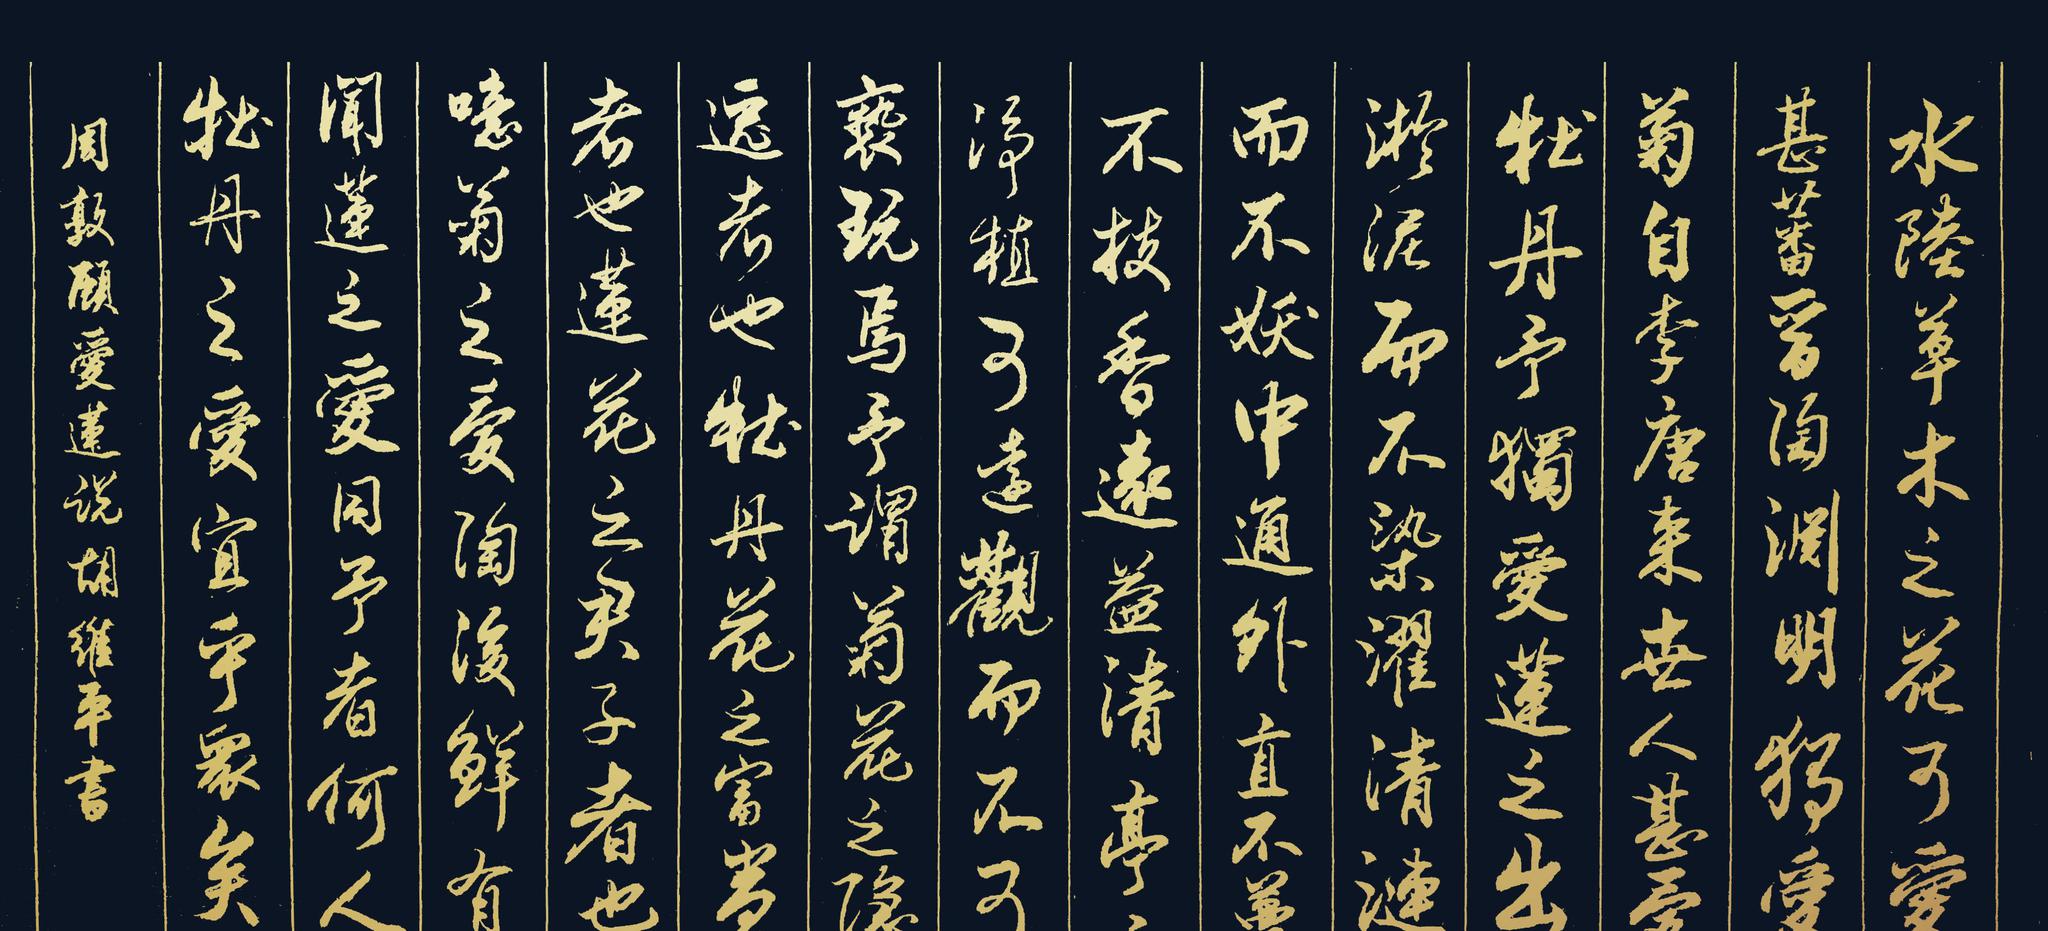 水陸草木之花可愛
甚蕃晉陶淵明獨愛
菊自李唐来世人甚愛
牡丹予獨愛蓮之出
淤泥而不染濯清漣
而不妖中通外直不蔓
不枝香遠益清亭
淨植可遠觀而不可
褻玩焉予謂菊花之隱
逸者也牡丹花之富貴
者也蓮花之君子者也
噫菊之愛陶後鮮有
聞蓮之愛同予者何人
牡丹之愛宜乎衆矣
周敦頤愛蓮説胡維平書